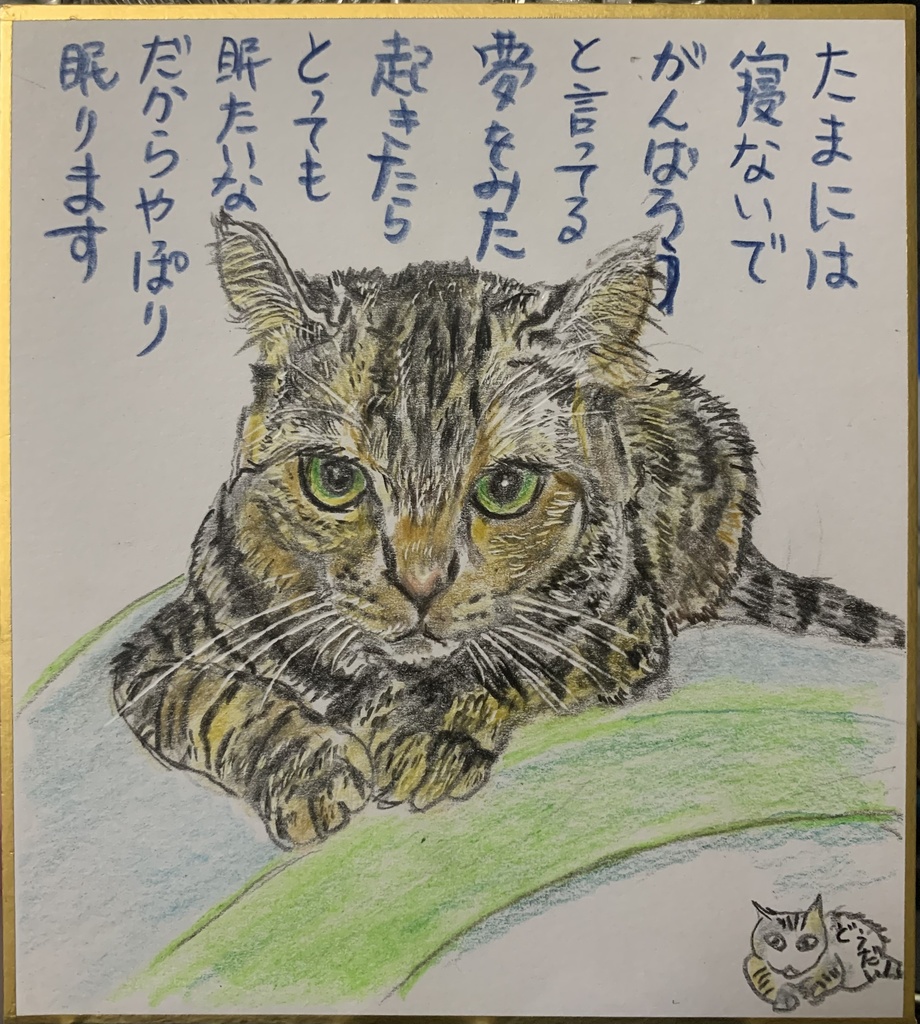 たまには
寝ないで
がんばろう
と言ってる
夢をみた
起きたら
とっても
眠たいな
だからやぽり
眠ります
どうだい